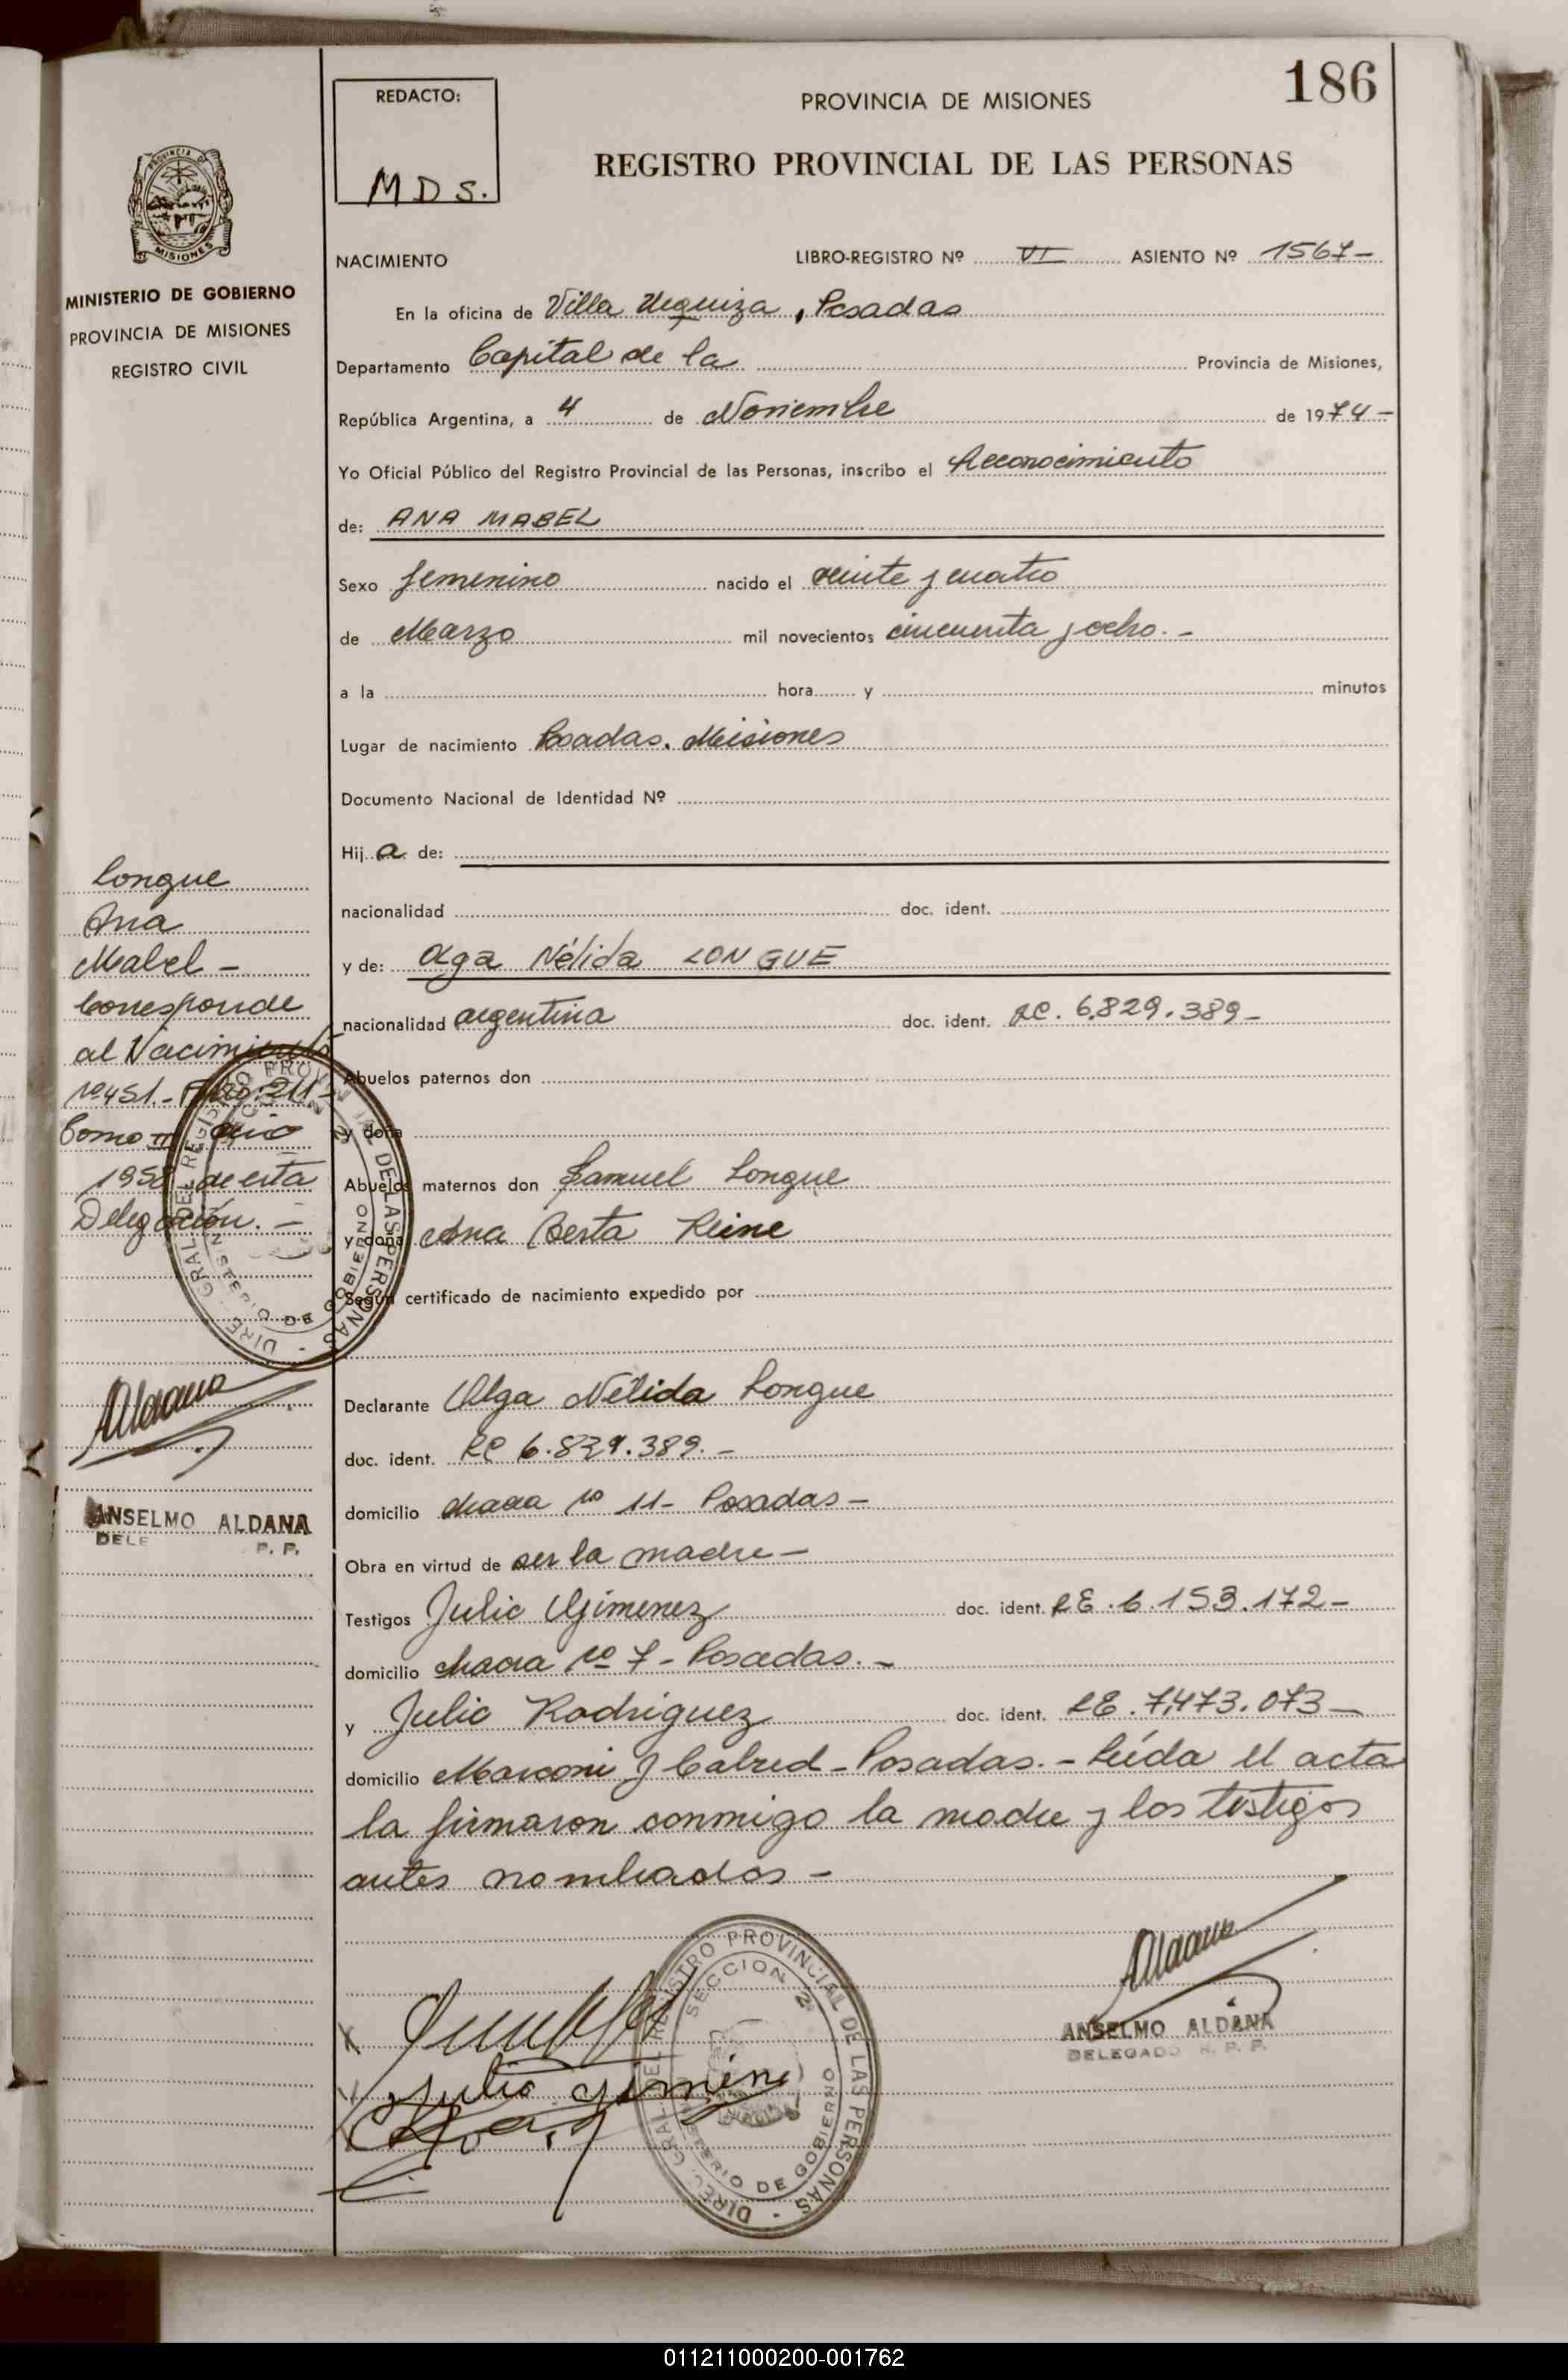 186
REDACTO:
MDS.
PROVINCIA DE MISIONES
REGISTRO PROVINCIAL DE LAS PERSONAS
PROVINCIA DE
MISIONES
MINISTERIO DE GOBIERNO
PROVINCIA DE MISIONES
REGISTRO CIVIL
NACIMIENTO LIBRO-REGISTRO Nº VI ASIENTO Nº 1567-
En la oficina de Villa Urquiza, Posadas
Departamento Capital de la Provincia de Misiones,
República Argentina, a 4 de Noviembre de 1974-
Yo Oficial Público del Registro Provincial de las Personas, inscribo el Reconocimiento
de: ANA MABEL
Sexo femenino nacido el veinte y cuatro
de Marzo mil novecientos cincuenta y ocho.-
a la hora y minutos
Lugar de nacimiento Posadas. Misiones
Documento Nacional de Identidad Nº
Hij a de:
nacionalidad doc. ident.
y de: Olga Nélida LONGUE
nacionalidad argentina doc. ident. LC. 6.829.389-
Abuelos paternos don
y doña
Abuelos maternos don Samuel Longue
y doña Ana Berta Reine
Según certificado de nacimiento expedido por
Declarante Olga Nélida Longue
doc. ident. LC 6.829.389.-
domicilio chacra nº 11- Posadas-
Obra en virtud de ser la madre-
Testigos Julio Gimenez doc. ident. LE. 6.153.172-
domicilio chacra nº 7- Posadas.-
y Julio Rodriguez doc. ident. LE. 7.473.073-
domicilio Marconi y Cabred- Posadas.- Leída el acta
la firmaron conmigo la madre y los testigos
antes nombrados-
Longue
Ana
Mabel-
Corresponde
al Nacimiento
nº 451.- Folio: 211-
Tomo III año
1958 de esta
Delegación.-
DIREC. GRAL. DEL REGISTRO PROVINCIAL DE LAS PERSONAS
MINISTERIO DE GOBIERNO
Aldana
ANSELMO ALDANA
DELE P. P.
Julio Gimenez
DIREC. GRAL. DEL REGISTRO PROVINCIAL DE LAS PERSONAS
SECCION 2
MINISTERIO DE GOBIERNO
Aldana
ANSELMO ALDANA
DELEGADO R. P. P.
011211000200-001762